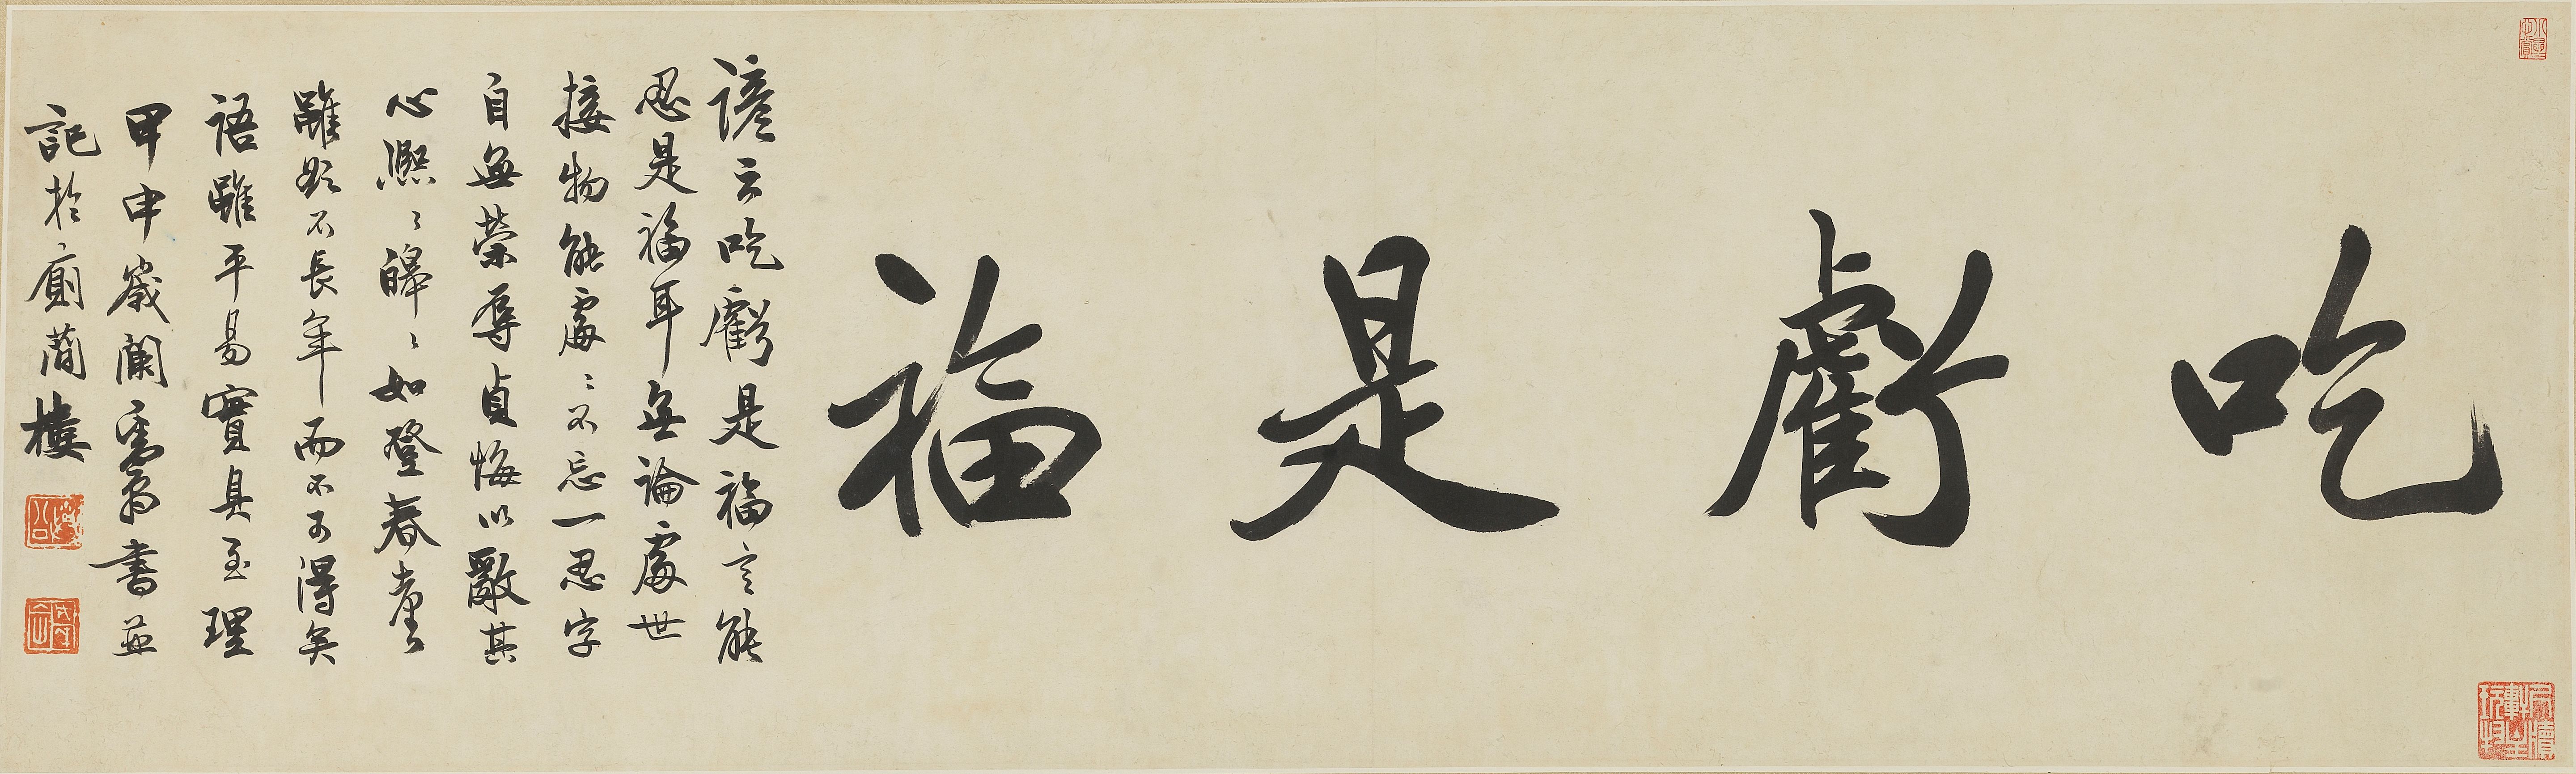 吃虧是福
諺云吃虧是福言能
忍是福耳無論處世
接物能處〻不忘一忍字
自無榮辱貞悔以斁其
心熈〻皞〻如登春臺
雖欲不長年而不可得矣
語雖平易實具至理
甲申歲闌雋為書並
記於廁蕳樓